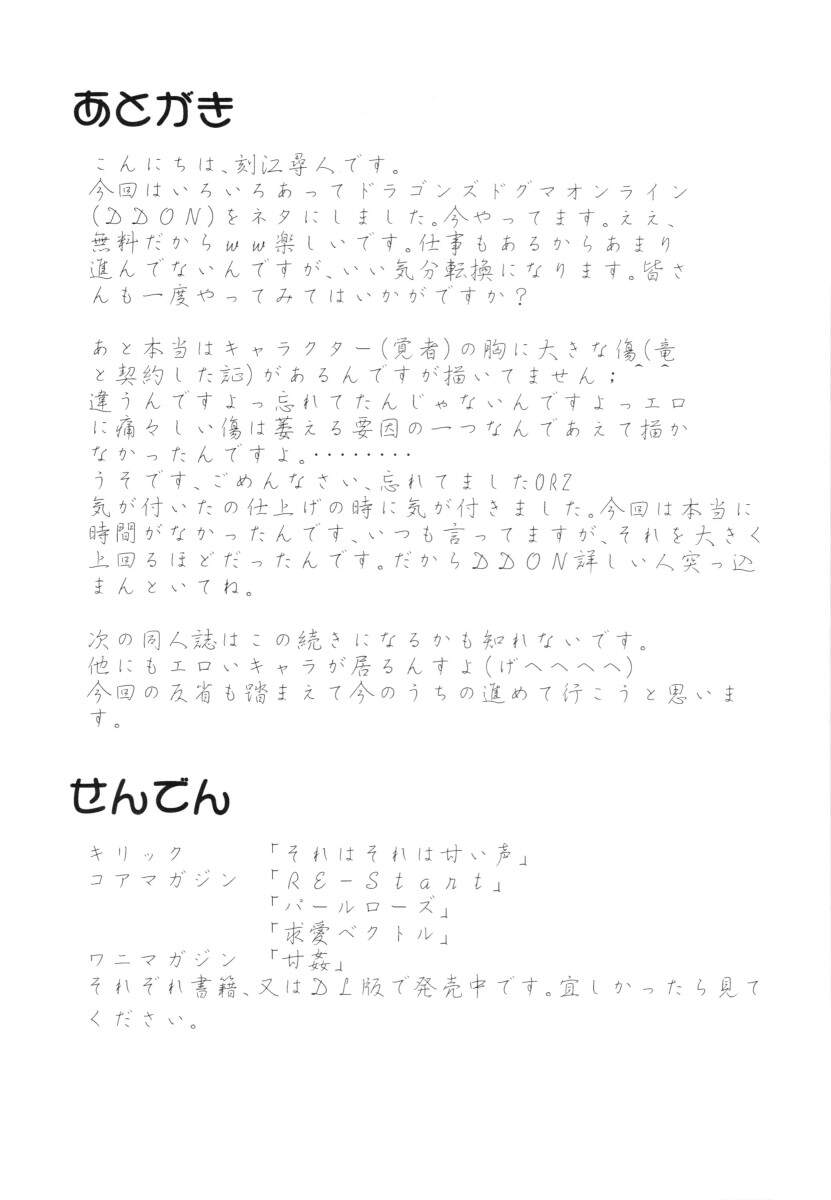 あとがき
こんにちは、刻江尋人です。
今回はいろいろあってドラゴンズドグマオンライン
(DDON)をネタにしました。今やってます。ええ、
無料だからww楽しいです。仕事もあるからあまり
進んでないんですが、いい気分転換になります。皆さ
んも一度やってみてはいかがですか？
あと本当はキャラクター(覚者)の胸に大きな傷(竜
と契約した証)があるんですが描いてません；＾＾
違うんですよっ忘れてたんじゃないんですよっエロ
に痛々しい傷は萎える要因の一つなんであえて描か
なかったんですよ。・・・・・・・・
うそです、ごめんなさい、忘れてましたORZ
気が付いたの仕上げの時に気が付きました。今回は本当に
時間がなかったんです、いつも言ってますが、それを大きく
上回るほどだったんです。だからDDON詳しい人突っ込
まんといてね。
次の同人誌はこの続きになるかも知れないです。
他にもエロいキャラが居るんすよ(げへへへへ)
今回の反省も踏まえて今のうちの進めて行こうと思いま
す。
せんでん
キリック 「それはそれは甘い声」
コアマガジン 「RE-Start」
「パールローズ」
「求愛ベクトル」
ワニマガジン 「甘姦」
それぞれ書籍、又はDL版で発売中です。宜しかったら見て
ください。